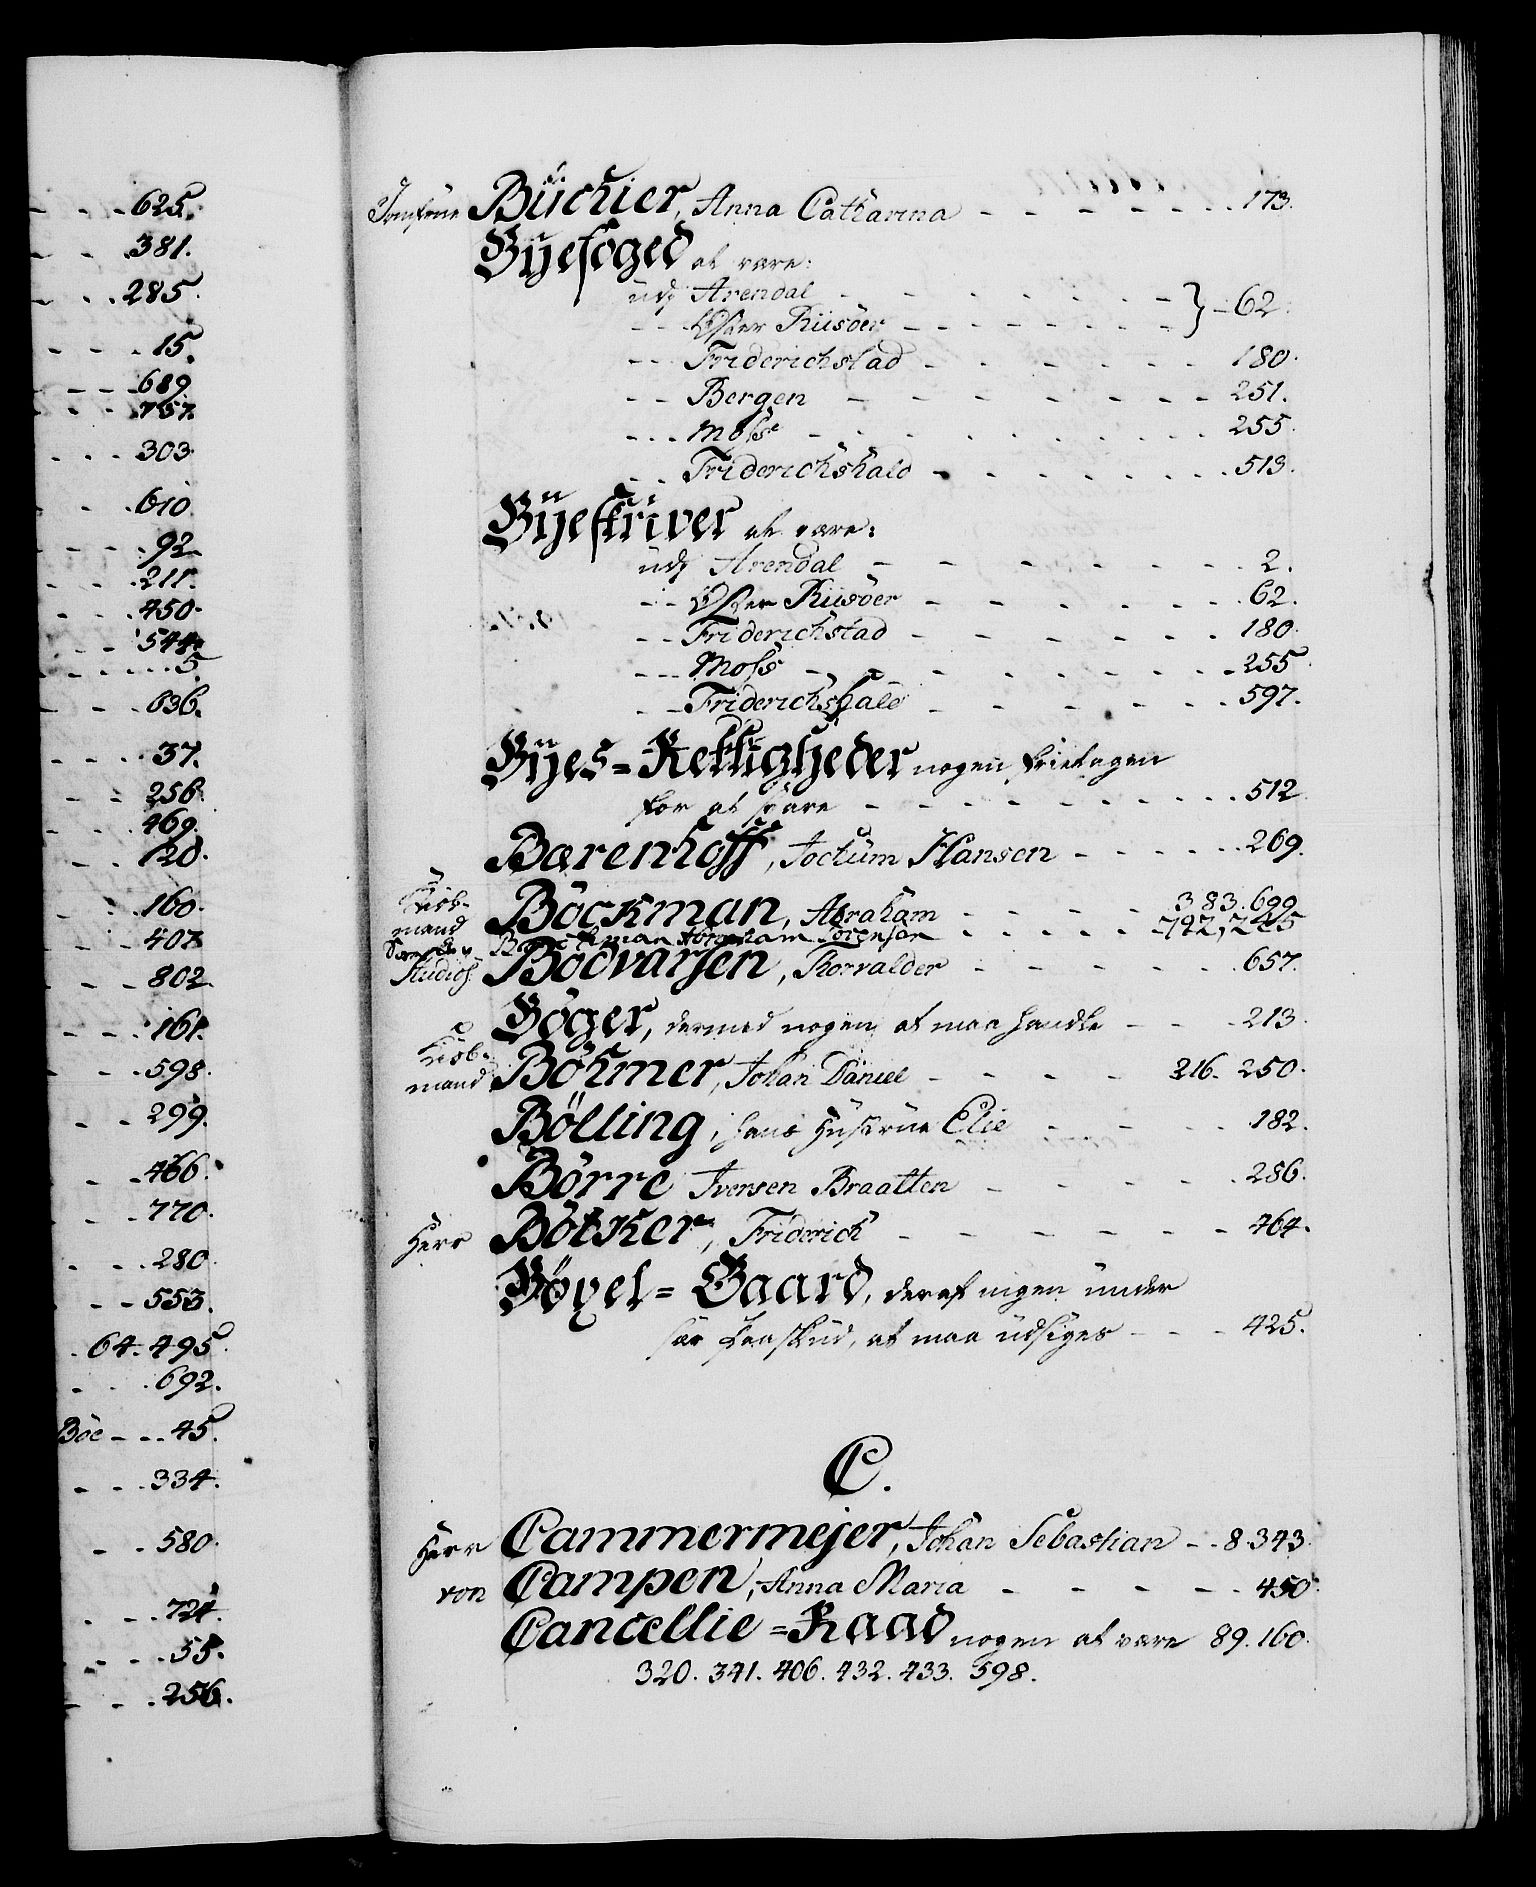 625.
381.
285.
15.
689.
757.
303.
610.
92.
211.
450.
544.
5.
636.
37.
256.
469.
120.
160.
407.
802.
161.
598.
299.
466.
770.
280.
553.
64. 495.
692.
Böe - - - 45.
334.
580.
724.
55.
256.
Jomfrue Büchier, Anna Catharina - - - - - - 173.
Byefoged at være:
udj Arendal - - - - - - - }
- - - Øster Riisöer - - - - - - - } - 62.
- - - Friderichstad - - - - - - 180.
- - - Bergen - - - - - - - 251.
- - - Moss - - - - - - - - 255.
- - - Friderichshald - - - - - - - 513.
Byeskriver at være:
udj Arendal - - - - - - - 2.
- - - Øster Riisöer - - - - - - - 62.
- - - Friderichstad - - - - - - - 180.
- - - Moss - - - - - - - - 255.
- - - Friderichshald - - - - - - 597.
Byes=Rettigheder nogen frietagen
for at svare - - - - - - - - 512.
Bærenhoff, Jochum Hansen - - - - - - 269.
Kiöbmand Böckman, Abraham - - - - - 383. 699
Böckman Abraham Sörensen - - - - - 742, 745
Studios. Bödvarsen, Thorvalder - - - - - - 657.
Bøger, dermed nogen at maa handle - - - 213.
Kiöbmand Böhmer, Johan Daniel - - - - 216. 250.
Bölling, hans Hustrue Elie - - - - - 182.
Börre Iversen Braatten - - - - - 286.
Herr Bötker, Friderich - - - - - - - 464.
Bøxel=Gaard, deraf nogen under
før Paaskud, at maa udsiges - - - 425.
C.
Herr Cammermejer, Johan Sebastian - - 8. 343.
von Campen, Anna Maria - - - - - 450.
Cancellie=Raad nogen at være 89. 160.
320. 341. 406. 432. 433. 598.